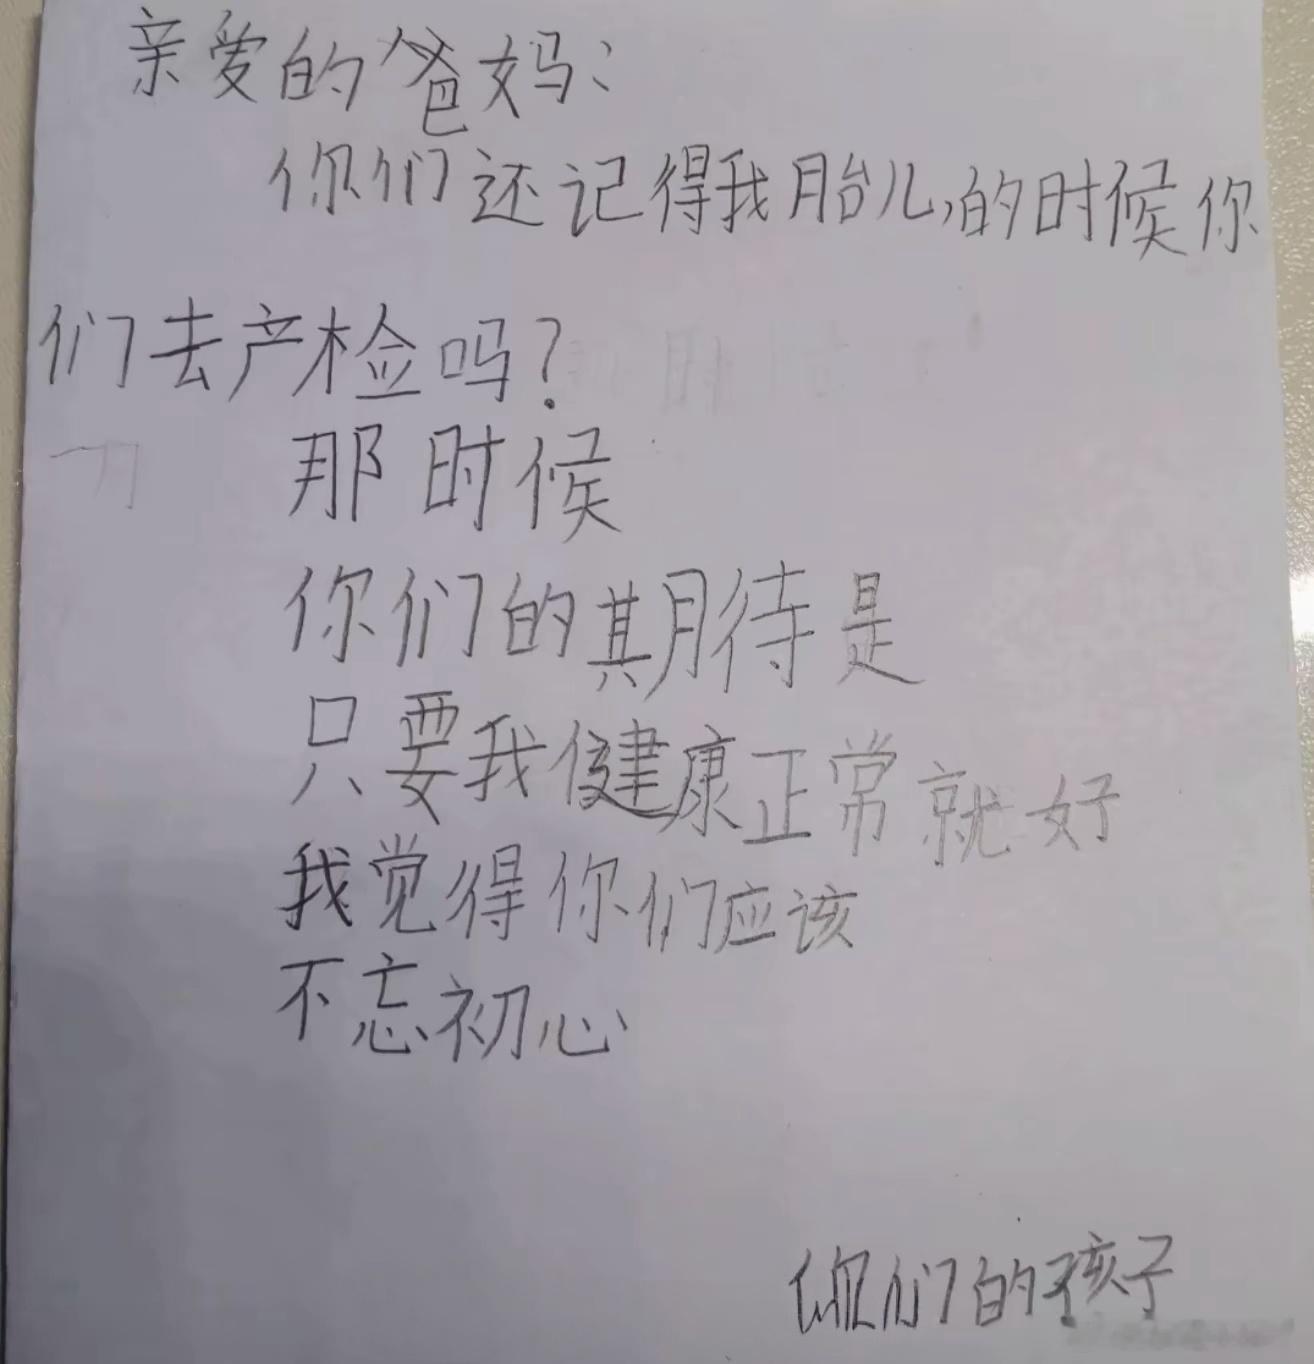 亲爱的爸妈：
你们还记得我胎儿的时候你
们去产检吗？
那时候
你们的期待是
只要我健康正常就好
我觉得你们应该
不忘初心
你们的孩子